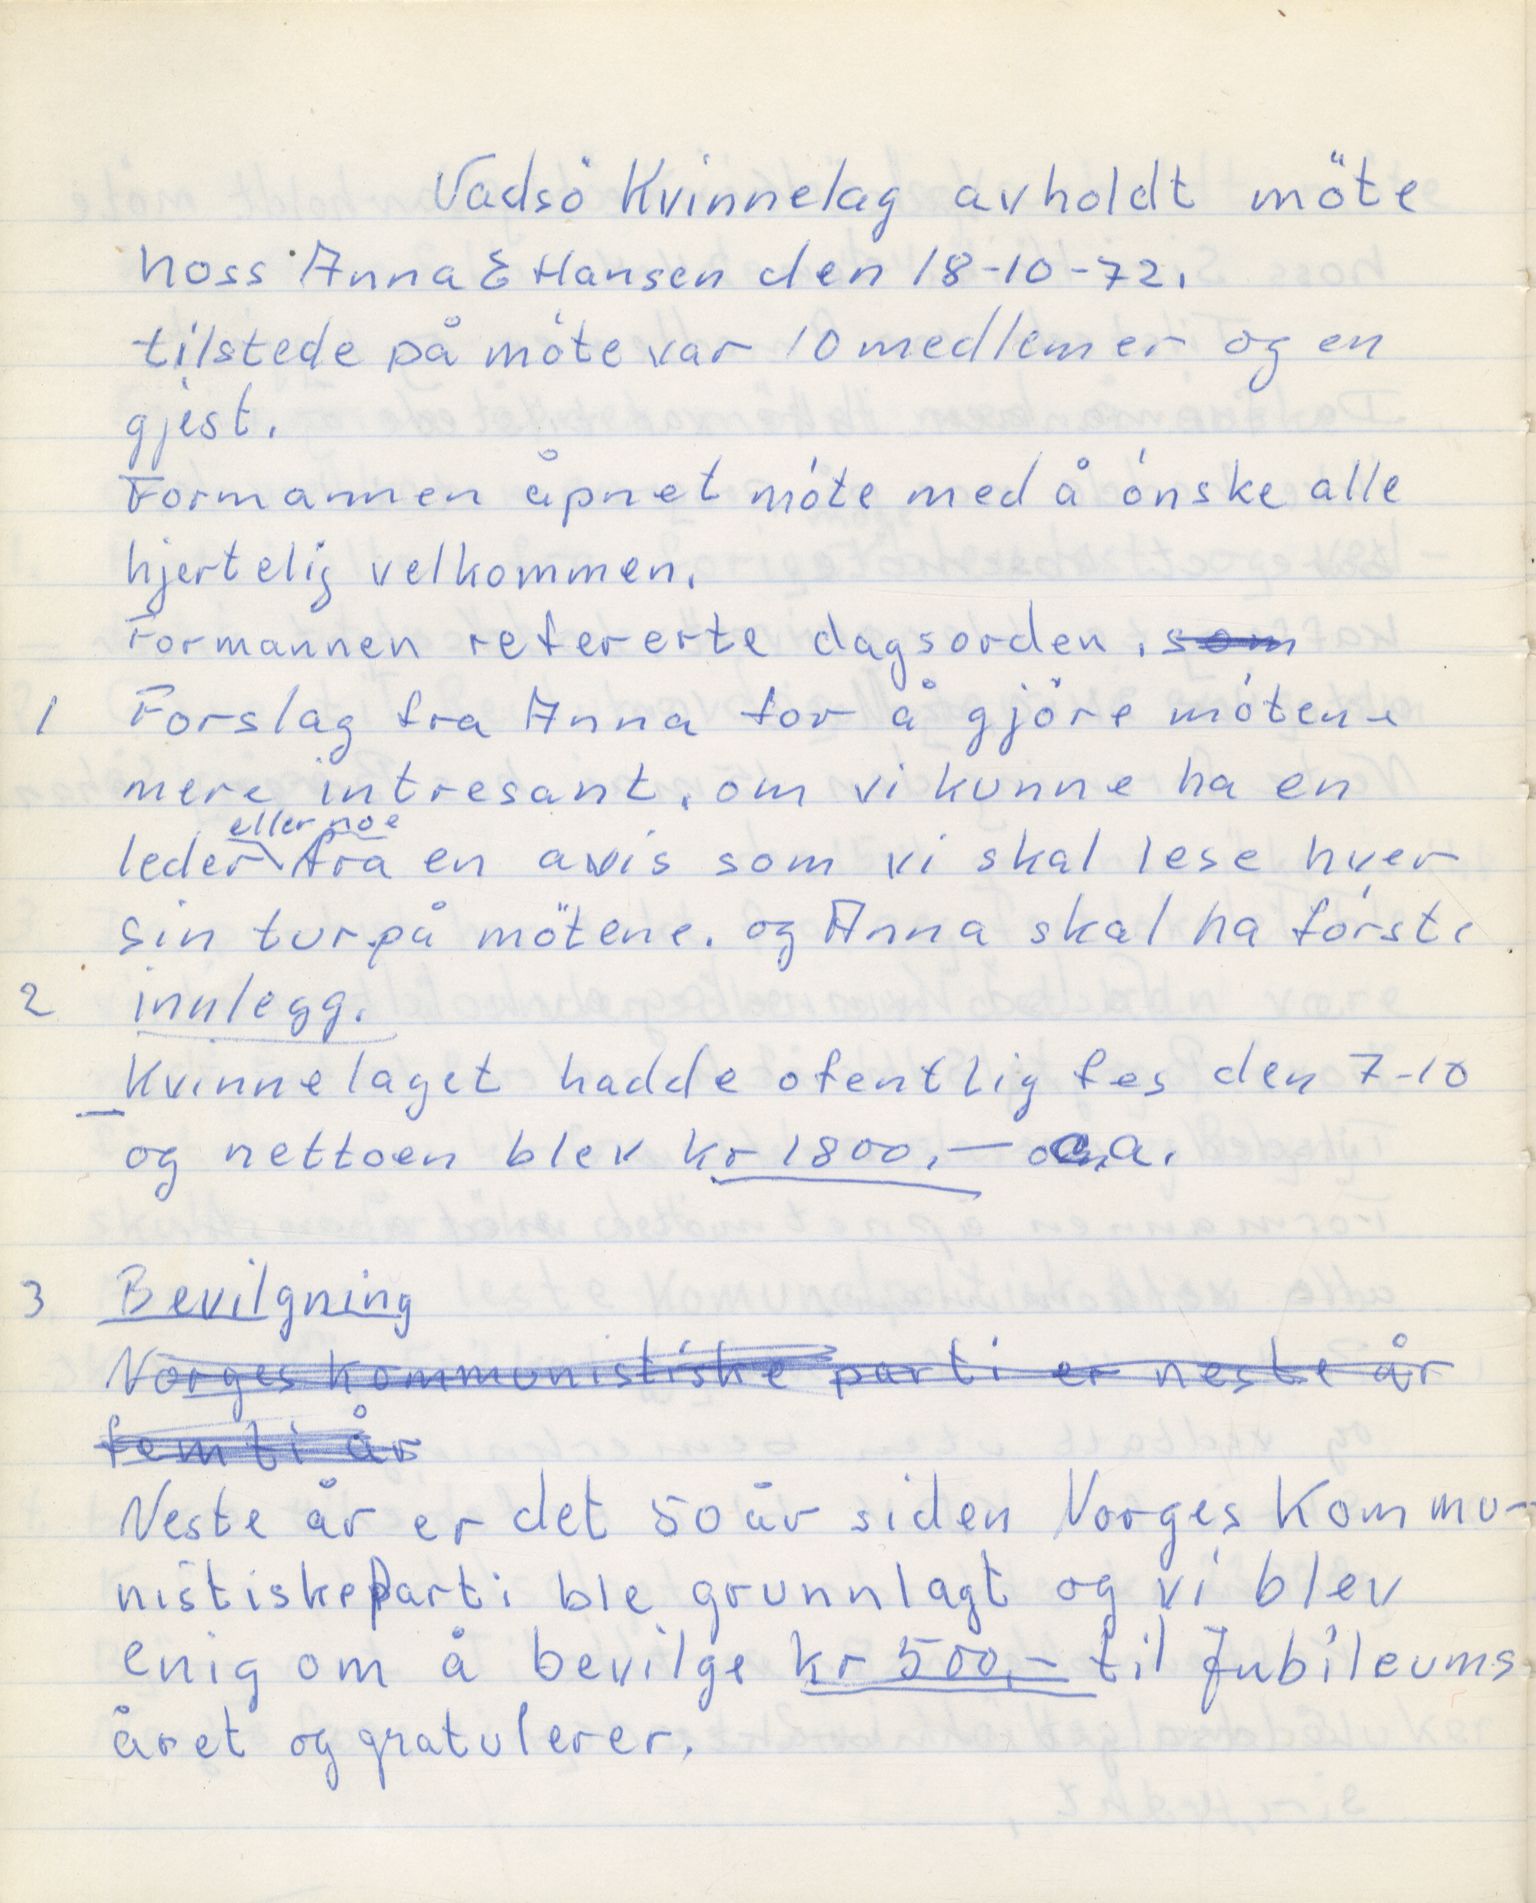 Vadsö Kvinnelag avholdt möte
hoss Anna E Hansen den 18-10-72.
tilstede på móte var 10 medlemer og en
gjest.
Formannen åpnet móte med å ónske alle
hjertelig velkommen.
Formannen refererte dagsorden. som
1 Forslag fra Anna for å gjóre mótene
mere intresant. om vi kunne ha en
eller noe
leder fra en avis som vi skal lese hver
sin tur på mötene. og Anna skal ha fórste
2 innlegg.
Kvinnelaget hadde ofentlig fes den 7-10
og nettoen blev kr 1800,- ca.
3 Bevilgning
Norges kommunistiske parti er neste år
femti år
Neste år er det 50 år siden Norges Kommu-
nistiske Parti ble grunnlagt og vi blev
enig om å bevilge kr 500,- til Jubileums
året og gratulerer.